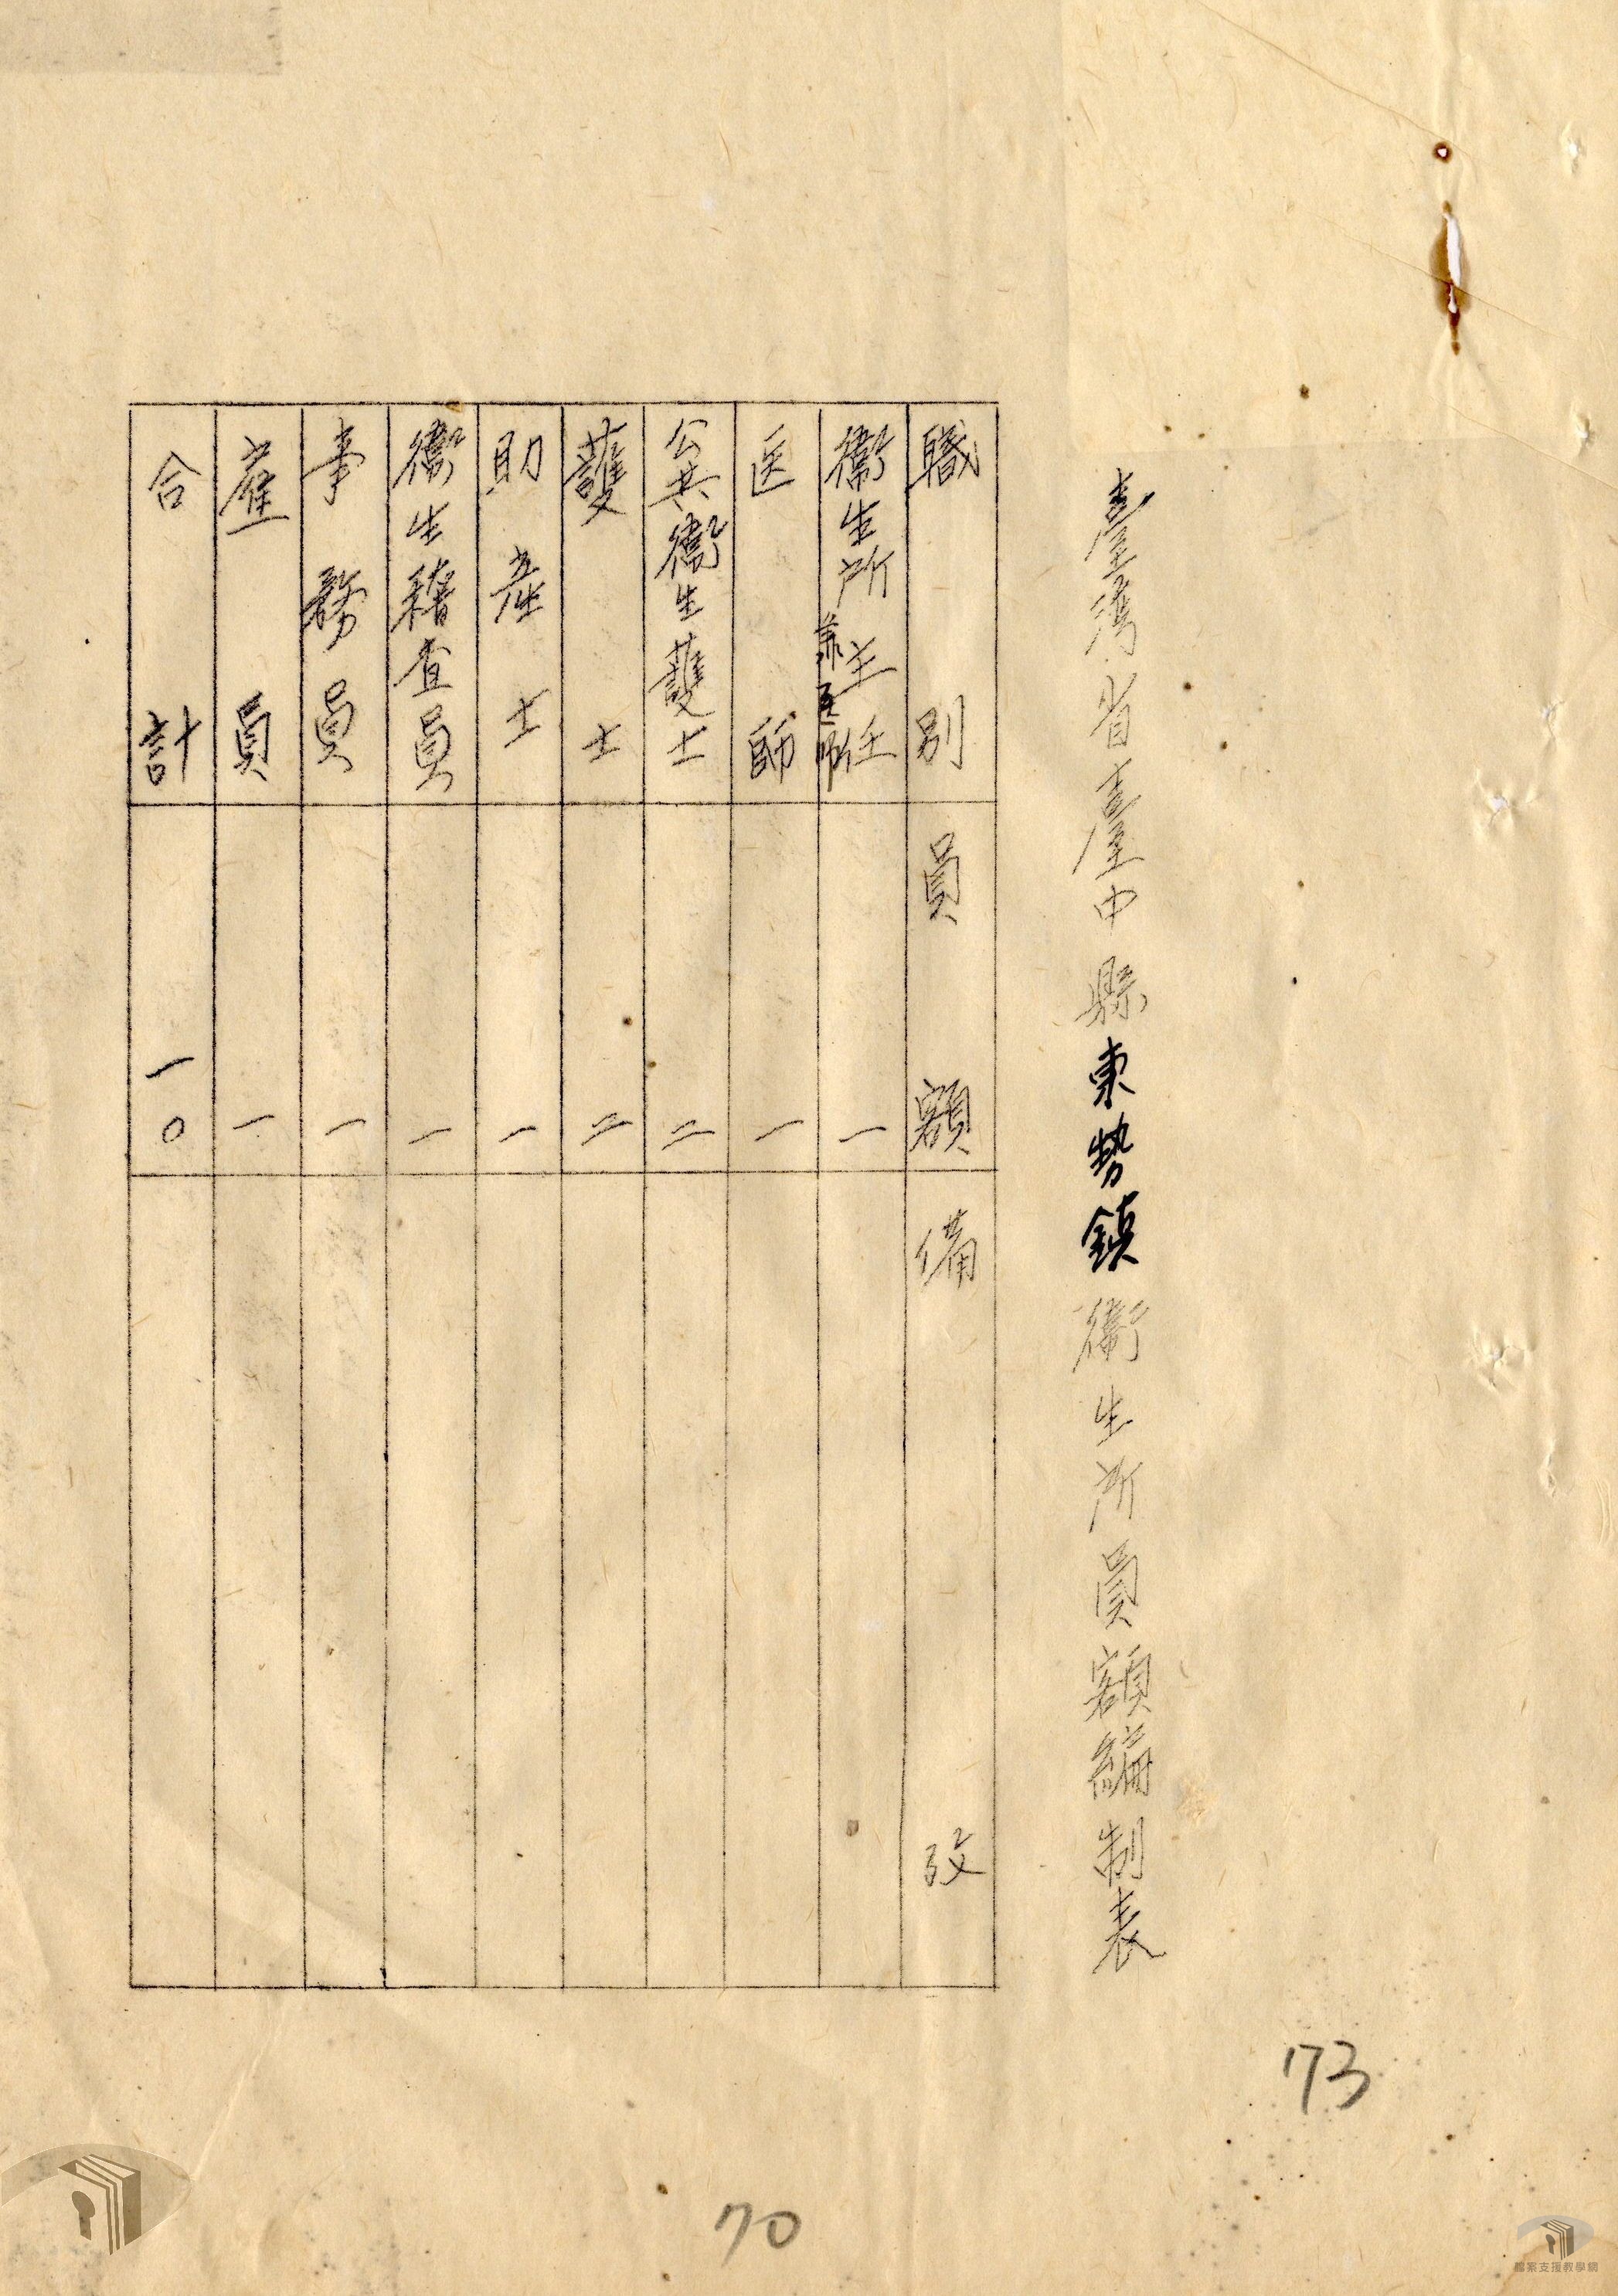 臺灣省臺中縣東勢鎮衛生所員額編制表
職別 員額 備攷
衛生所主任 一
兼醫師
医師 一
公共衛生護士 二
護士 二
助產士 一
衛生稽查員 一
事務員 一
雇員 一
合計 一〇
73
70
檔案支援教學網